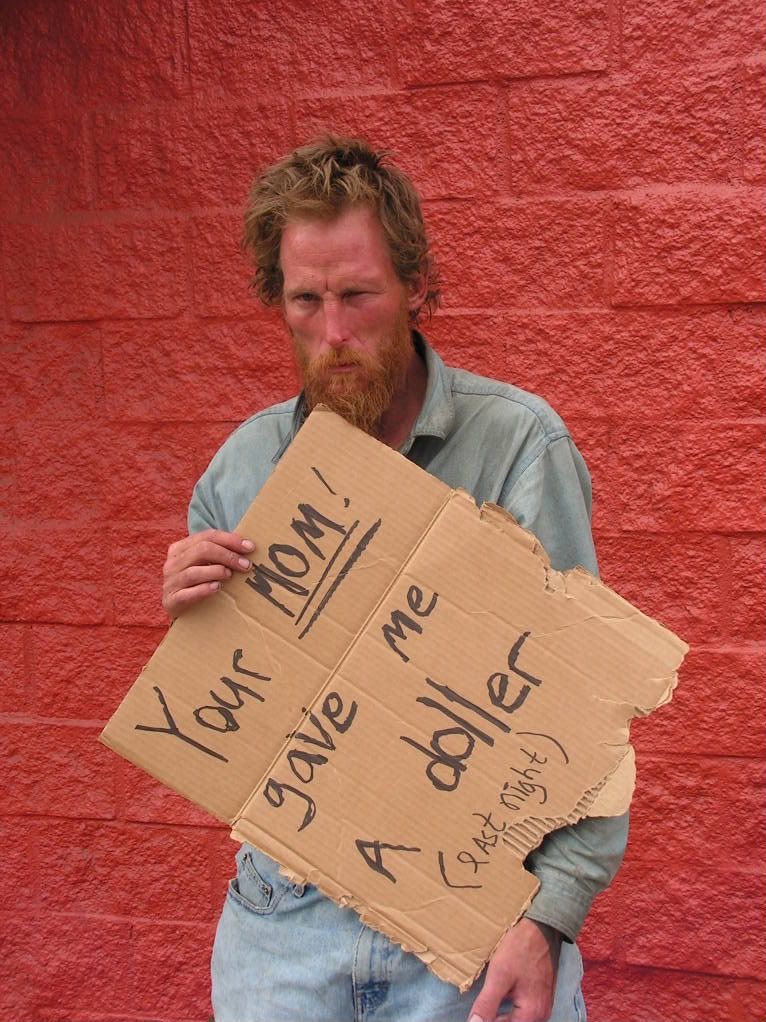 Your MOM!
gave me
A doller
(last night)